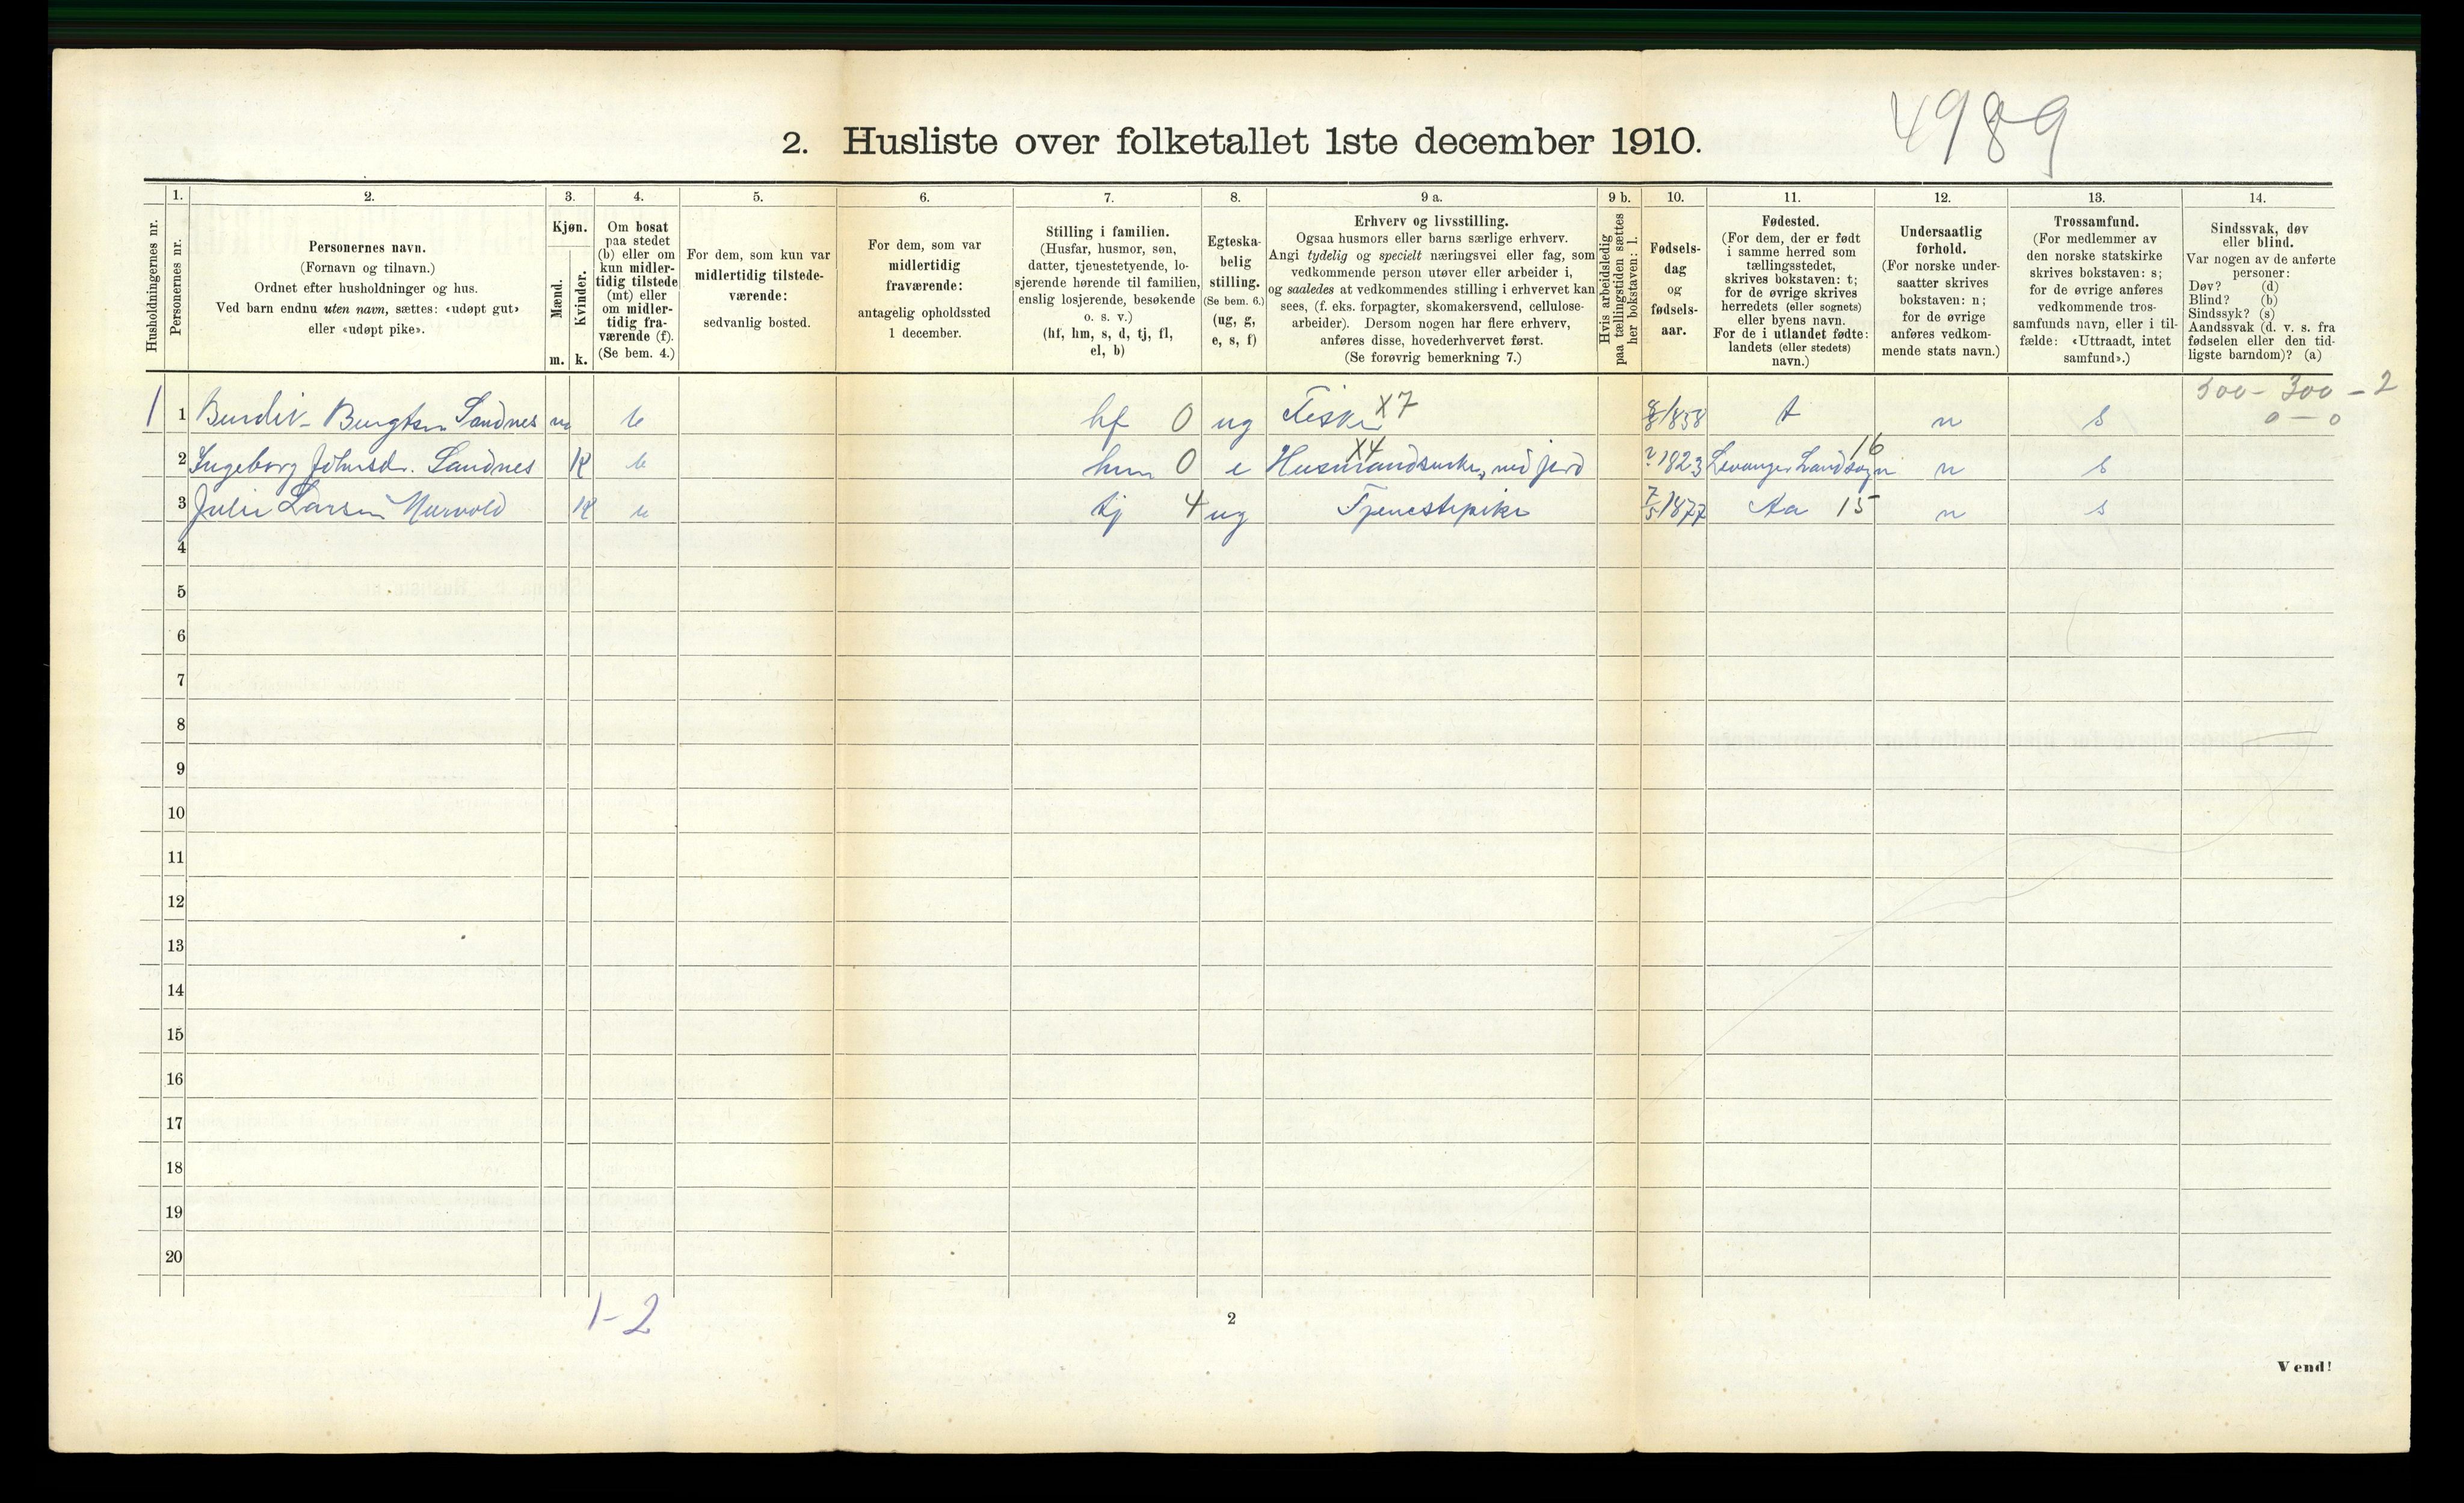 4989
2. Husliste over folketallet 1ste december 1910.
Husholdningernes nr.
1.
Personernes nr.
2.
Personernes navn.
(Fornavn og tilnavn.)
Ordnet efter husholdninger og hus.
Ved barn endnu uten navn, sættes: «udøpt gut»
eller «udøpt pike».
3.
Kjøn.
Mænd.
Kvinder.
m. k.
4.
Om bosat
paa stedet
(b) eller om
kun midler-
tidig tilstede
(mt) eller
om midler-
tidig fra-
værende (f).
(Se bem. 4.)
5.
For dem, som kun var
midlertidig tilstede-
værende:
sedvanlig bosted.
6.
For dem, som var
midlertidig
fraværende:
antagelig opholdssted
1 december.
7.
Stilling i familien.
(Husfar, husmor, søn,
datter, tjenestetyende, lo-
sjerende hørende til familien,
enslig losjerende, besøkende
o. s. v.)
(hf, hm, s, d, tj, fl,
el, b)
8.
Egteska-
belig
stilling.
(Se bem. 6.)
(ug, g,
e, s, f)
9 a.
Erhverv og livsstilling.
Ogsaa husmors eller barns særlige erhverv.
Angi tydelig og specielt næringsvei eller fag, som
vedkommende person utøver eller arbeider i,
og saaledes at vedkommendes stilling i erhvervet kan
sees, (f. eks. forpagter, skomakersvend, cellulose-
arbeider). Dersom nogen har flere erhverv,
anføres disse, hovederhvervet først.
(Se forøvrig bemerkning 7.)
9 b.
Hvis arbeidsledig
paa tællingstiden sættes
her bokstaven: l.
10.
Fødsels-
dag
og
fødsels-
aar.
11.
Fødested.
(For dem, der er født
i samme herred som
tællingsstedet,
skrives bokstaven: t;
for de øvrige skrives
herredets (eller sognets)
eller byens navn.
For de i utlandet fødte:
landets (eller stedets)
navn.)
12.
Undersaatlig
forhold.
(For norske under-
saatter skrives
bokstaven: n;
for de øvrige
anføres vedkom-
mende stats navn.)
13.
Trossamfund.
(For medlemmer av
den norske statskirke
skrives bokstaven: s;
for de øvrige anføres
vedkommende tros-
samfunds navn, eller i til-
fælde: «Uttraadt, intet
samfund».)
14.
Sindssvak, døv
eller blind.
Var nogen av de anførte
personer:
Døv? (d)
Blind? (b)
Sindssyk? (s)
Aandssvak (d. v. s. fra
fødselen eller den tid-
ligste barndom)? (a)
300 - 300 - 2
1 1 Sandnes m b hf 0 ug Fisker X7 1858 t n s 0 - 0
2 Ingeborg Johnsd. Sandnes K b hm 0 e X4 med jord ? 1823 Levanger Landsogn 16 n s
3 Julie Larsen K b tj 4 ug Tjenestepike 7/5 1877 Aa 15 n s
4
5
6
7
8
9
10
11
12
13
14
15
16
17
18
19
20
1-2
2
Vend!